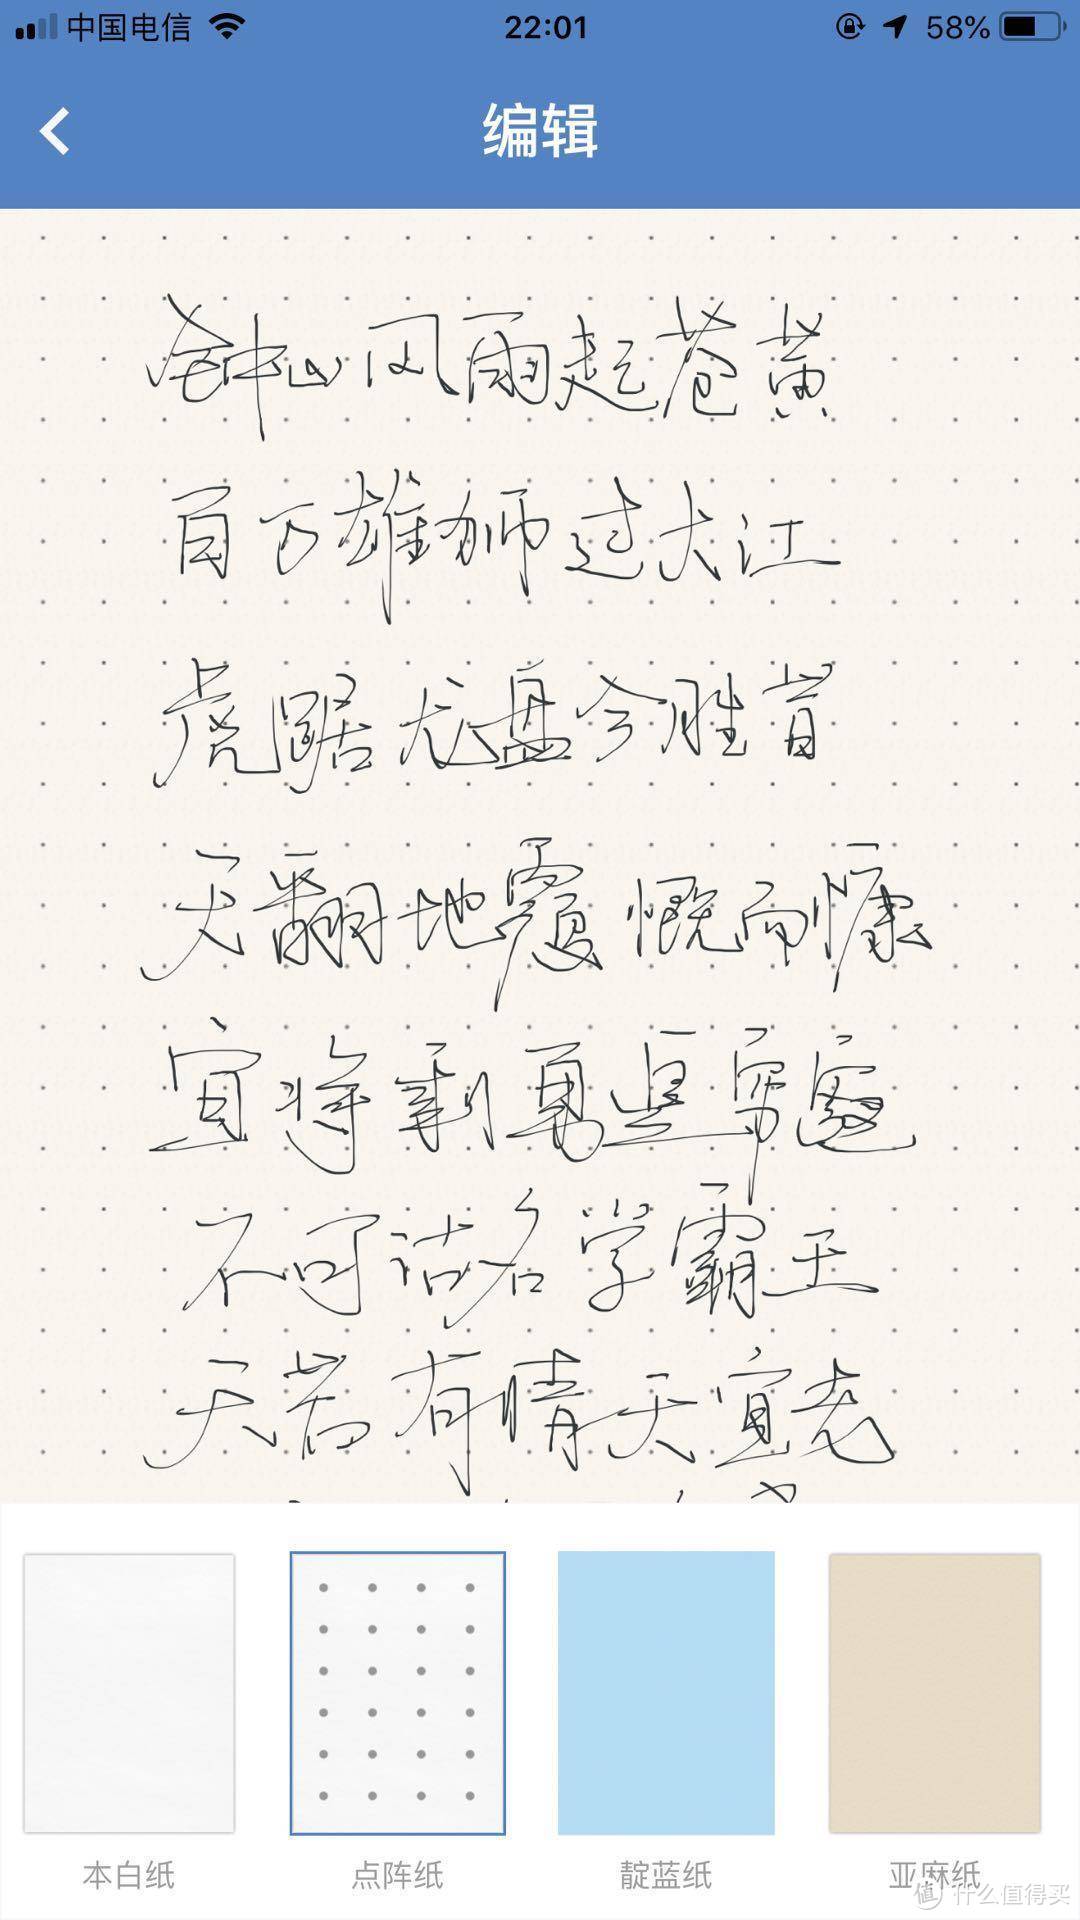 中国电信 22:01 58%
编辑
钟山风雨起苍黄
百万雄师过大江
虎踞龙盘今胜昔
天翻地覆慨而慷
宜将剩勇追穷寇
不可沽名学霸王
天若有情天宜老
本白纸 点阵纸 靛蓝纸 亚麻纸
值 什么值得买